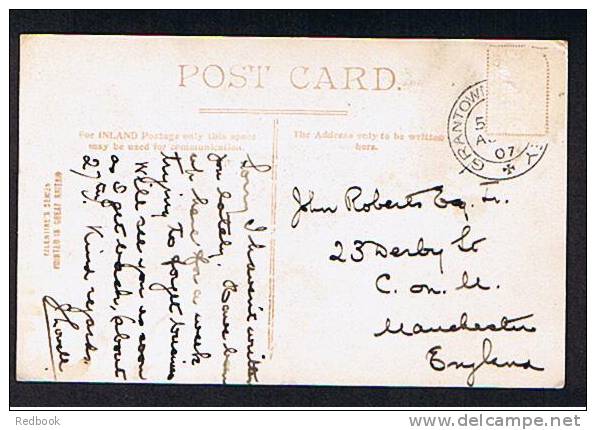 POST CARD.
For INLAND Postage only this space
may be used for communication.
The Address only to be written
here.
GRANTOWN
5
07
VALENTINE'S SERIES
PRINTED IN GREAT BRITAIN
Sorry I haven't written
you lately. Have been
up here for a week
trying to forget business
Will see you as soon
as I get back, about
27th. Kind regards
John Roberts Esq. Jr.
23 Derby St
C. on M.
Manchester
England
Redbook
delcampe.net